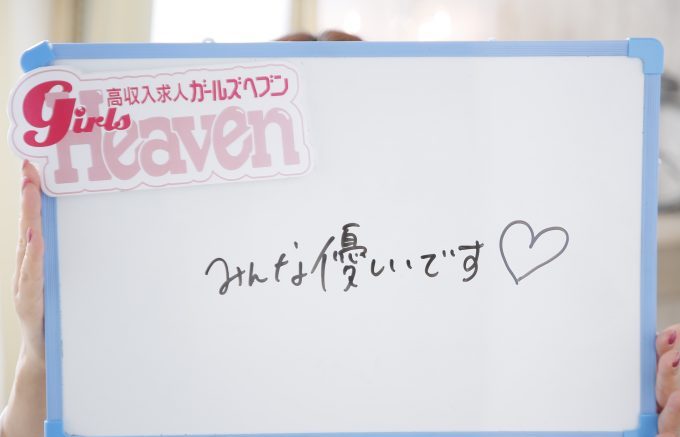 高収入求人 ガールズヘブン
Girls
Heaven
みんな優しいです♡